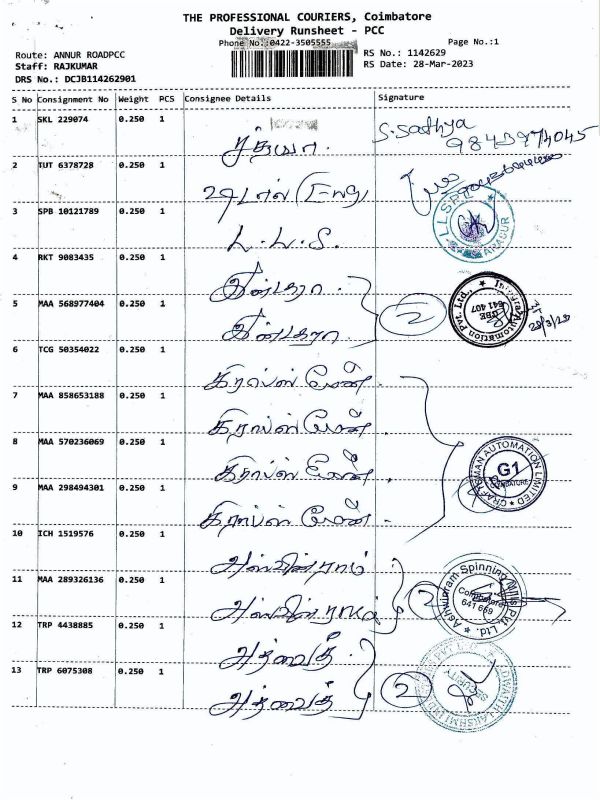 THE PROFESSIONAL COURIERS, Coimbatore
Delivery Runsheet - PCC
Phone No.:0422-3505555 Page No.:1
Route: ANNUR ROADPCC RS No.: 1142629
Staff: RAJKUMAR RS Date: 28-Mar-2023
DRS No.: DCJB114262901
S No Consignment No Weight PCS Consignee Details Signature
1 SKL 229074 0.250 1 S.Sathya
2 TUT 6378728 0.250 1
3 SPB 10121789 0.250 1 L.L.S.
4 RKT 9083435 0.250 1
5 MAA 568977404 0.250 1 2
6 TCG 50354022 0.250 1 கிராப்ஸ் மேன்
7 MAA 858653188 0.250 1 கிராப்ஸ் மேன்
8 MAA 570236069 0.250 1 கிராப்ஸ் மேன்
9 MAA 298494301 0.250 1 கிராப்ஸ் மேன்
CRAFTSMAN AUTOMATION LIMITED G1
10 ICH 1519576 0.250 1 அஸ்வின்ராம்
11 MAA 289326136 0.250 1 அஸ்வின்ராம் 2
Ashwinram Spinning Mills Pvt. Ltd. Coimbatore 641 669
12 TRP 4438885 0.250 1 அத்வைத்
13 TRP 6075308 0.250 1 அத்வைத் 2